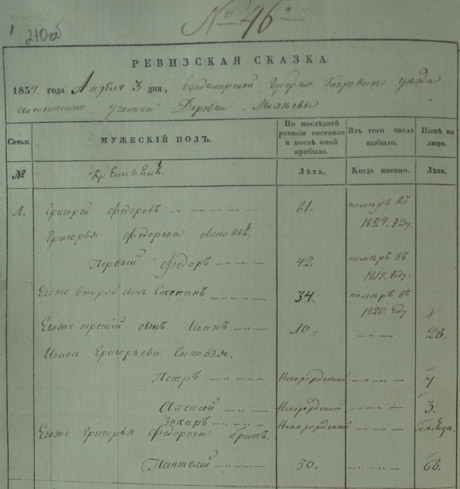 № 46й
1
РЕВИЗСКАЯ СКАЗКА
1834 года Апреля 3 дня, Владимирской Губернии Ковровского уезда
Деревни
Семьи. МУЖЕСКІЙ ПОЛЪ. По послѣдней ревизіи состояло и послѣ оной прибыло. Изъ того числа выбыло. Нынѣ на лицо.
№ Лѣта. Когда именно. Лѣта.
1. Григорій Федоровъ 61. померъ въ 1827. году
Григорья Федорова сыновья
Первый Федоръ 42. померъ въ 1819. году
Егоже второй сынъ Степанъ 34. померъ въ 1820. году
Егоже третій сынъ Иванъ 10. 28.
Ивана Григорьева сыновья.
Петръ Новорожденной 7
Алексей Новорожденной 3.
Захаръ Новорожденной
Егоже Григорья Федорова братъ
Пантелей 50. 68.